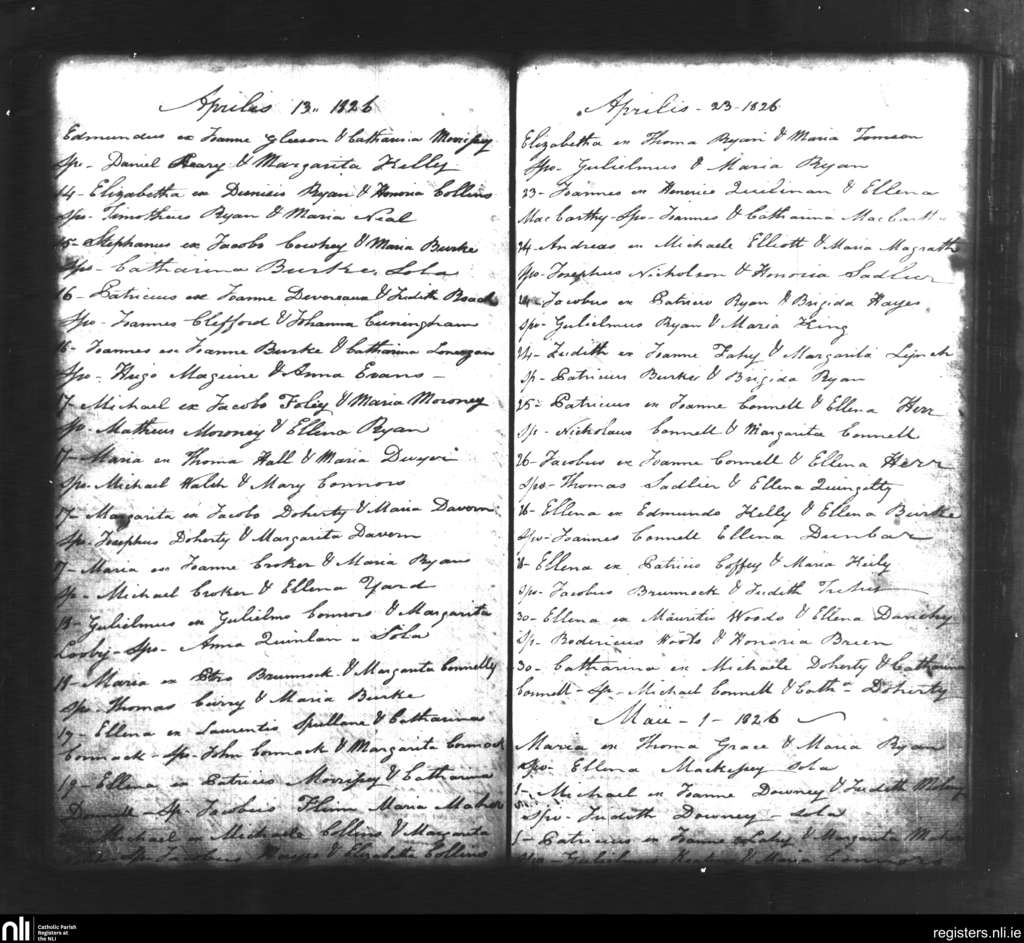 Aprilis 13.. 1826
Edmundus ex Joanne Gleeson & Catharina Morrissey
Sps- Daniel Reary & Margarita Kelly
14- Elizabetha ex Dionisio Ryan & Honoria Collins
Sps- Timotheus Ryan & Maria Neal
15- Stephanus ex Jacobo Cowhey & Maria Burke
Sps- Catharina Burke. Sola
16- Patricius ex Joanne Devereaux & Judith Roach
Sps- Joannes Clifford & Johanna Cuningham
16- Joannes ex Joanne Burke & Catharina Lonergan
Sps- Hugo Maguire & Anna Evans-
17- Michael ex Jacobo Foley & Maria Moroney
Sp- Matheus Moroney & Ellena Ryan
17- Maria ex Thoma Hall & Maria Dwyer
Sps- Michael Walsh & Mary Connors
17- Margarita ex Jacobo Doherty & Maria Davern
Sps- Josephus Doherty & Margarita Davern
17- Maria ex Joanne Croker & Maria Ryan
Sp- Michael Croker & Ellena Yard
18- Gulielmus ex Gulielmo Connors & Margarita
Looby- Sps- Anna Quinlan - Sola
18- Maria ex Petro Brunnock & Margarita Connelly
Sps- Thomas Curry & Maria Burke
19- Ellena ex Laurentio Spillane & Catharina
Cormack - Sp- John Cormack & Margarita Cormack
19- Ellena ex Patricio Morrissey & Catharina
Sp- Jacobus Flinn Maria Maher
Michael ex Michaele Collins & Margarita
Sp- Jacobus Hayes & Elizabetha Collins
Aprilis - 23 - 1826
Elizabetha ex Thoma Ryan & Maria Tomson
Sps- Gulielmus & Maria Ryan
23- Joannes ex Henerico Quilinan & Ellena
MacCarthy- Sps- Joannes & Catharina MacCarthy
24- Andreas ex Michaele Elliott & Maria Magrath
Sps- Josephus Nicholson & Honoria Sadlier
24- Jacobus ex Patricio Ryan & Brigida Hayes
Sps- Gulielmus Ryan & Maria King
24- Judith ex Joanne Fahy & Margarita Lynch
Sp- Patricius Burke & Brigida Ryan
25- Patricius ex Joanne Connell & Ellena Herr
Sp- Nickolaus Connell & Margarita Connell
26- Jacobus ex Joanne Connell & Ellena Herr
Sps- Thomas Sadlier & Ellena Quingelty
26- Ellena ex Edmundo Kelly & Ellena Burke
Sps- Joannes Connell Ellena Dunbar
Ellena ex Patricio Coffey & Maria Keily
Sps- Jacobus Brunnock & Judith
30- Ellena ex Mauritio Woods & Ellena Danehy
Sp- Rodericus Woods & Honoria Breen
30- Catharina ex Michaele Doherty & Catharina
Connell- Sp- Michael Connell & Cathna Doherty
Maii - 1 - 1826
Maria ex Thoma Grace & Maria Ryan
Sps- Ellena Mackessy Sola
1- Michael ex Joanne Downey & Judith
Sps- Judith Downey - Sola
1- Patricius ex Joanne Lahy & Margarita
Sps- Gulielmus & Maria Connors
nli
Catholic Parish
Registers at
the NLI
registers.nli.ie